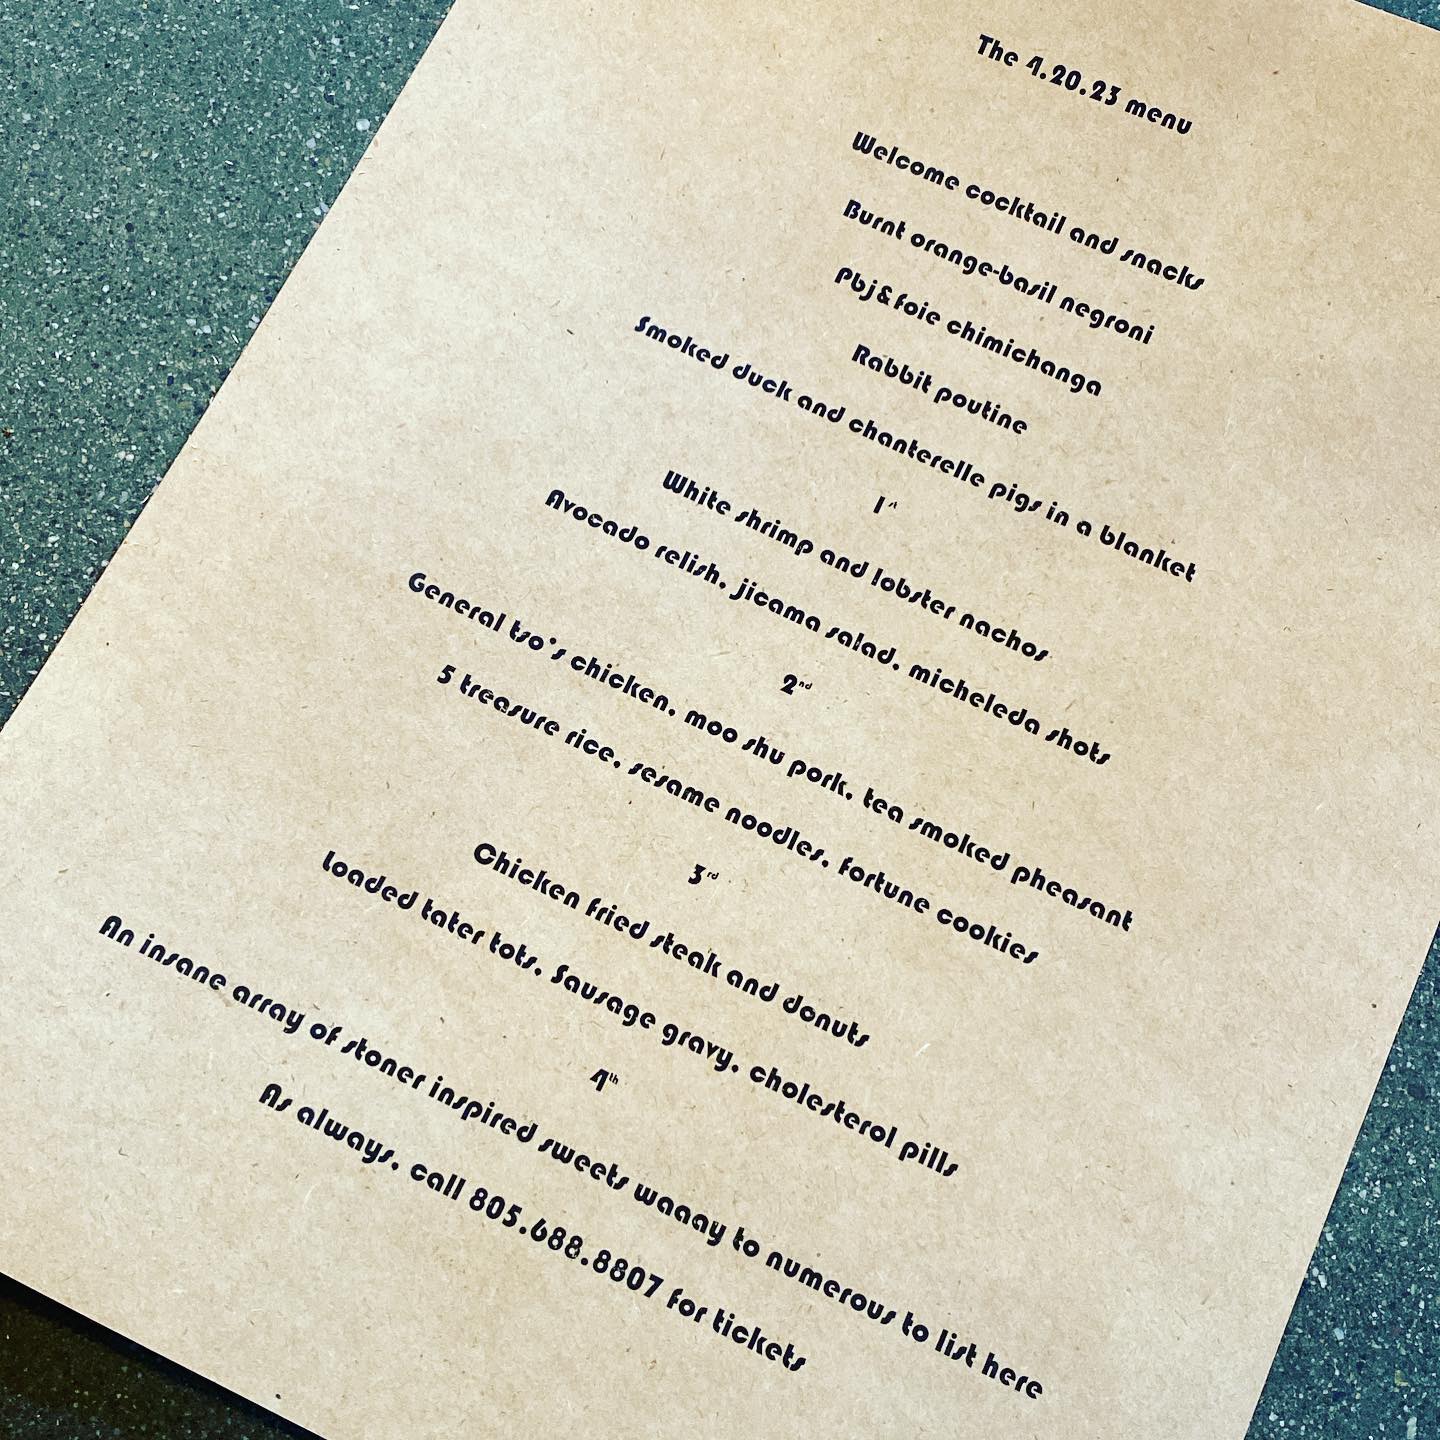 The 4.20.23 menu
Welcome cocktail and snacks
Burnt orange-basil negroni
Pbj&foie chimichanga
Rabbit poutine
Smoked duck and chanterelle pigs in a blanket
1st
White shrimp and lobster nachos
Avocado relish, jicama salad, micheleda shots
2nd
General tso's chicken, moo shu pork, tea smoked pheasant
5 treasure rice, sesame noodles, fortune cookies
3rd
Chicken fried steak and donuts
Loaded tater tots, Sausage gravy, cholesterol pills
4th
An insane array of stoner inspired sweets waaay to numerous to list here
As always, call 805.688.8807 for tickets